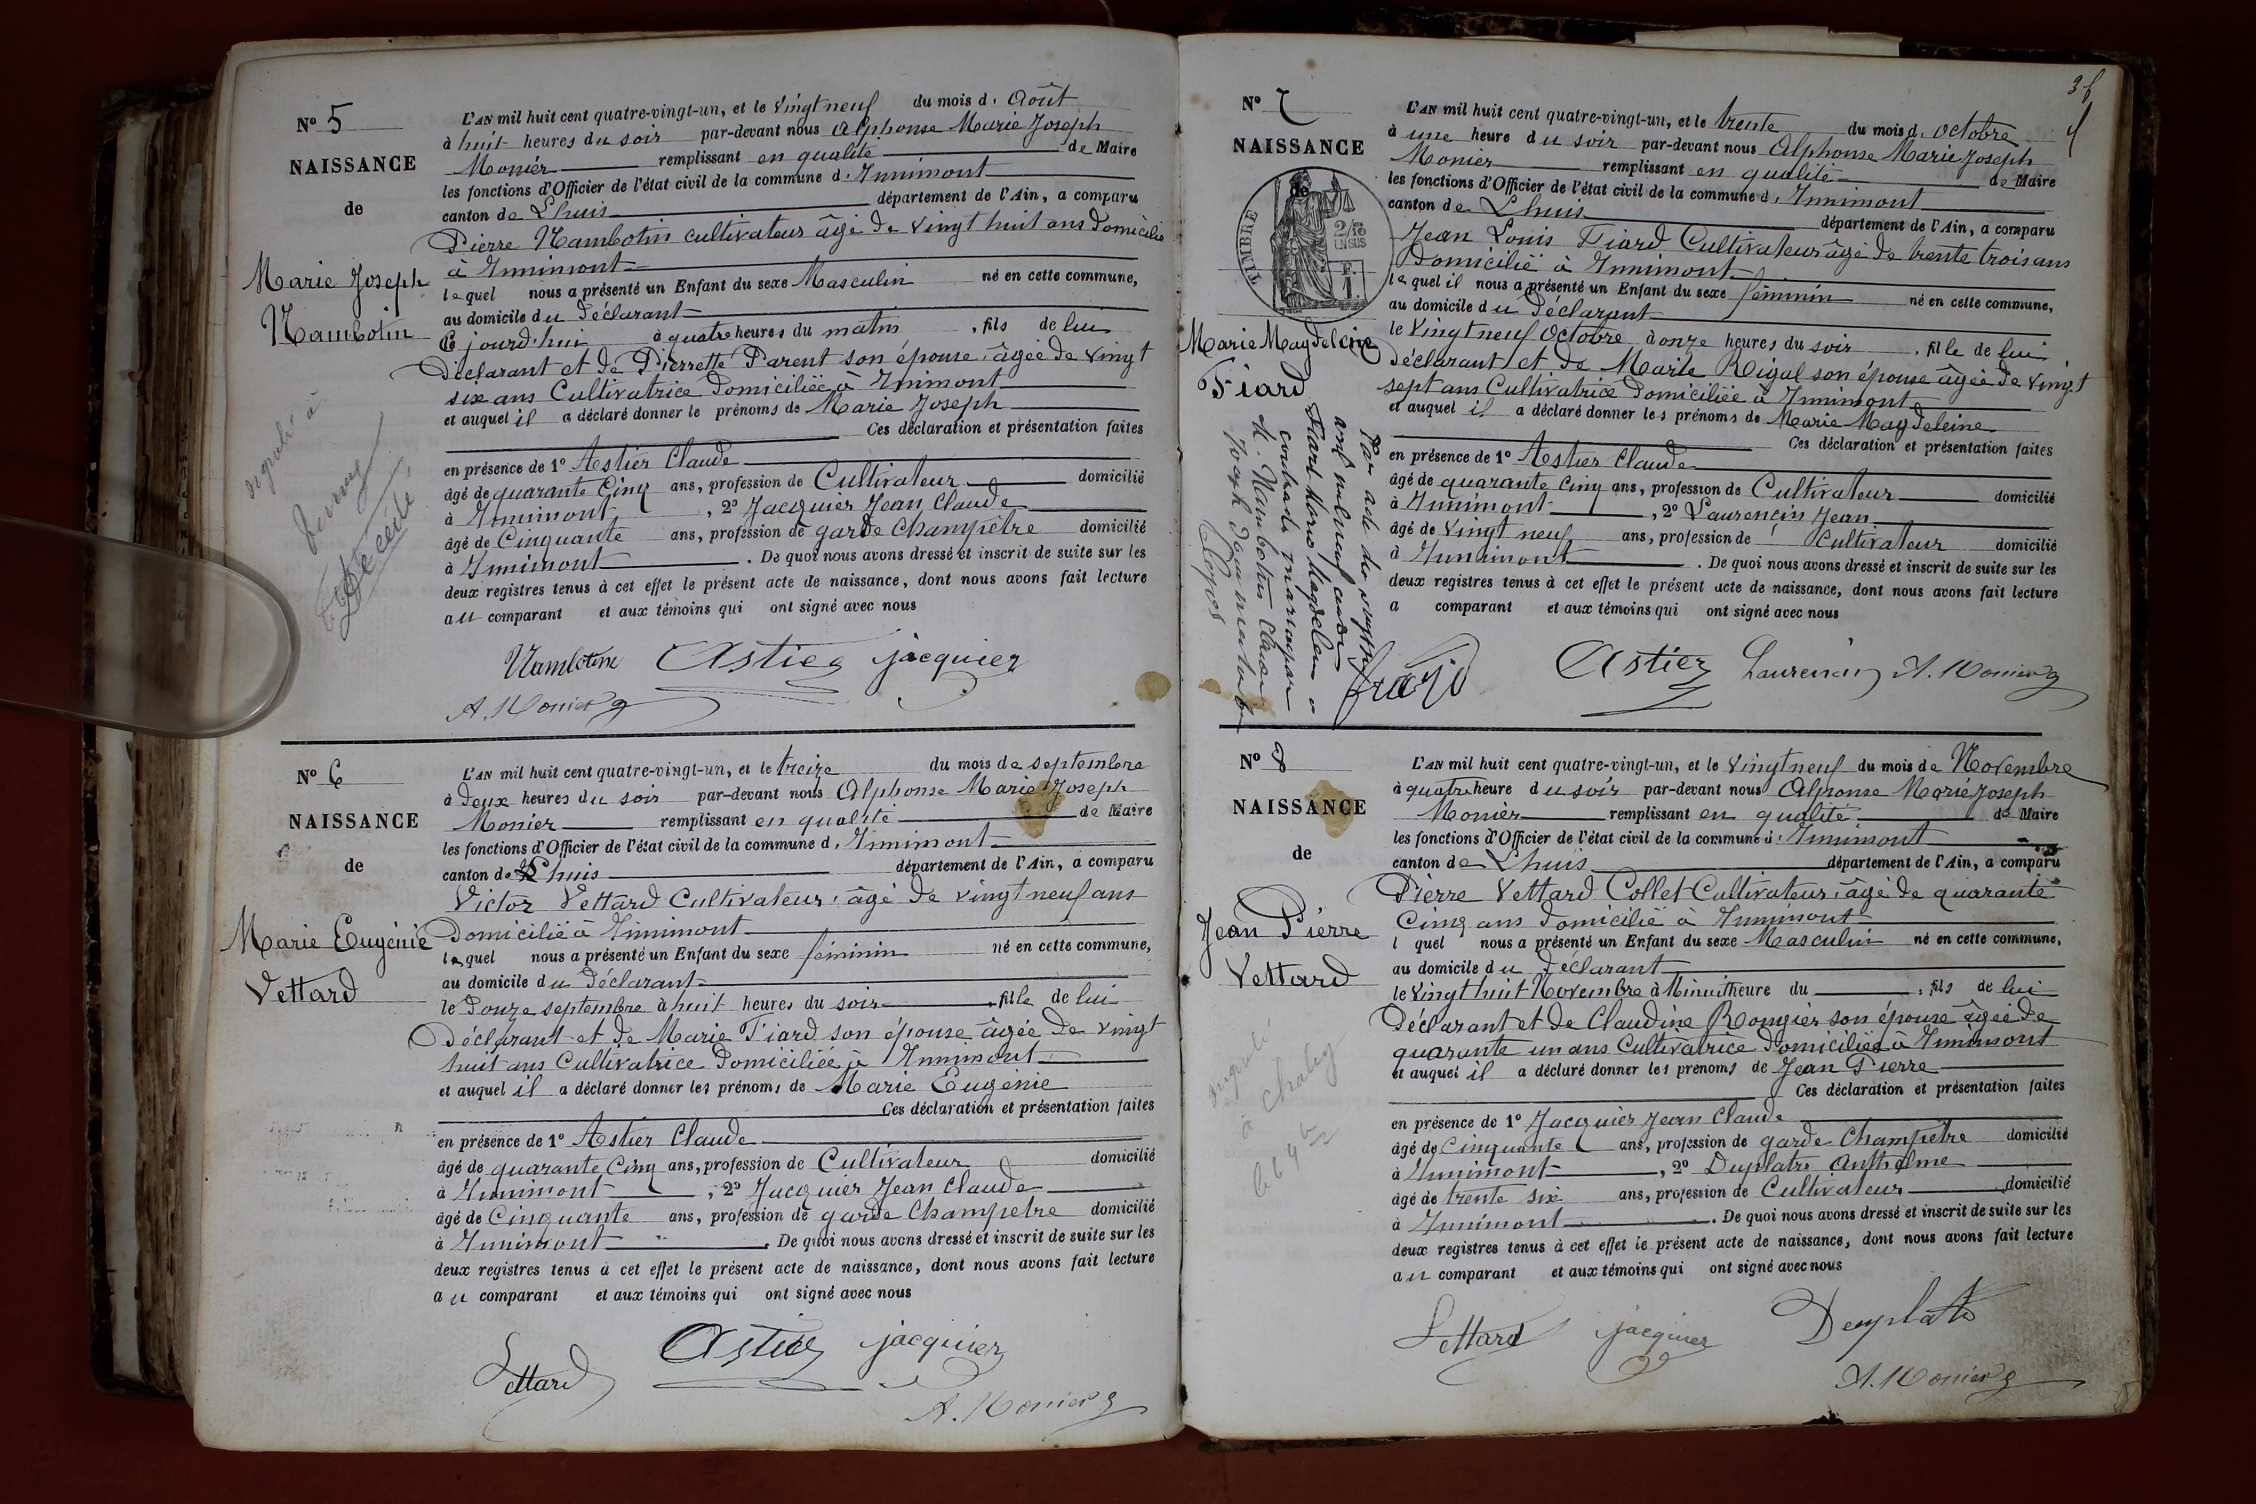 Nº 5
NAISSANCE
de
Marie Joseph
Nambotin
Décédé
L'AN mil huit cent quatre-vingt-un, et le vingt neuf du mois d. Août
à huit heures du soir par-devant nous Alphonse Marie Joseph
Monier remplissant en qualité de Maire
les fonctions d'Officier de l'état civil de la commune d. Innimont
canton de Lhuis département de l'Ain, a comparu
Pierre Nambotin cultivateur âgé de vingt huit ans domicilié
à Innimont
lequel nous a présenté un Enfant du sexe Masculin né en cette commune,
au domicile du déclarant
Ce jourd'hui à quatre heures du matin, fils de lui
Déclarant et de Pierrette Parent son épouse, âgée de vingt
six ans Cultivatrice domiciliée à Inimont
et auquel il a déclaré donner le prénoms de Marie Joseph
Ces déclaration et présentation faites
en présence de 1º Astier Claude
âgé de quarante cinq ans, profession de Cultivateur domicilié
à Innimont, 2º Jacquier Jean Claude
âgé de Cinquante ans, profession de garde Champêtre domicilié
à Innimont. De quoi nous avons dressé et inscrit de suite sur les
deux registres tenus à cet effet le présent acte de naissance, dont nous avons fait lecture
au comparant et aux témoins qui ont signé avec nous
Nambotin Astier jacquier
A. Monier
Nº 6
NAISSANCE
de
Marie Eugénie
Vettard
L'AN mil huit cent quatre-vingt-un, et le treize du mois de septembre
à deux heures du soir par-devant nous Alphonse Marie Joseph
Monier remplissant en qualité de Maire
les fonctions d'Officier de l'état civil de la commune d. Innimont
canton de Lhuis département de l'Ain, a comparu
Victor Vettard Cultivateur, âgé de vingt neuf ans
Domicilié à Innimont
lequel nous a présenté un Enfant du sexe féminin né en cette commune,
au domicile du déclarant
le douze septembre à huit heures du soir, fille de lui
Déclarant et de Marie Fiard son épouse âgée de vingt
huit ans Cultivatrice domiciliée à Innimont
et auquel il a déclaré donner les prénoms de Marie Eugénie
Ces déclaration et présentation faites
en présence de 1º Astier Claude
âgé de quarante cinq ans, profession de Cultivateur domicilié
à Innimont, 2º Jacquier Jean Claude
âgé de Cinquante ans, profession de garde Champetre domicilié
à Innimont. De quoi nous avons dressé et inscrit de suite sur les
deux registres tenus à cet effet le présent acte de naissance, dont nous avons fait lecture
au comparant et aux témoins qui ont signé avec nous
Vettard Astier jacquier
A. Monier
Nº 7
NAISSANCE
de
TIMBRE
Marie Magdeleine
Fiard
L'AN mil huit cent quatre-vingt-un, et le trente du mois d. octobre
à une heure du soir par-devant nous Alphonse Marie Joseph
Monier remplissant en qualité de Maire
les fonctions d'Officier de l'état civil de la commune d. Innimont
canton de Lhuis département de l'Ain, a comparu
Jean Louis Fiard Cultivateur âgé de trente trois ans
Domicilié à Innimont
lequel il nous a présenté un Enfant du sexe féminin né en cette commune,
au domicile du déclarant
le vingt neuf octobre à onze heures du soir, fille de lui
déclarant et de Marie Rigal son épouse âgée de vingt
sept ans Cultivatrice domiciliée à Innimont
et auquel il a déclaré donner les prénoms de Marie Magdeleine
Ces déclaration et présentation faites
en présence de 1º Astier Claude
âgé de quarante cinq ans, profession de Cultivateur domicilié
à Innimont, 2º Laurencin Jean
âgé de vingt neuf ans, profession de Cultivateur domicilié
à Innimont. De quoi nous avons dressé et inscrit de suite sur les
deux registres tenus à cet effet le présent acte de naissance, dont nous avons fait lecture
a comparant et aux témoins qui ont signé avec nous
Astier Laurencin A. Monier
Nº 8
NAISSANCE
de
Jean Pierre
Vettard
L'AN mil huit cent quatre-vingt-un, et le vingt neuf du mois de Novembre
à quatre heure du soir par-devant nous Alponse Marie Joseph
Monier remplissant en qualité de Maire
les fonctions d'Officier de l'état civil de la commune d. Innimont
canton de Lhuis département de l'Ain, a comparu
Pierre Vettard Collet Cultivateur, âgé de quarante
Cinq ans domicilié à Innimont
l quel nous a présenté un Enfant du sexe Masculin né en cette commune,
au domicile du déclarant
le vingt huit Novembre à Minuit heure du, fils de lui
Déclarant et de Claudine Rougier son épouse âgée de
quarante un ans Cultivatrice domiciliée à Innimont
et auquel il a déclaré donner les prénoms de Jean Pierre
Ces déclaration et présentation faites
en présence de 1º Jacquier Jean Claude
âgé de Cinquante ans, profession de garde Champêtre domicilié
à Innimont, 2º Duplatre Anthelme
âgé de trente six ans, profession de Cultivateur domicilié
à Innimont. De quoi nous avons dressé et inscrit de suite sur les
deux registres tenus à cet effet le présent acte de naissance, dont nous avons fait lecture
au comparant et aux témoins qui ont signé avec nous
Vettard jacquier
A. Monier